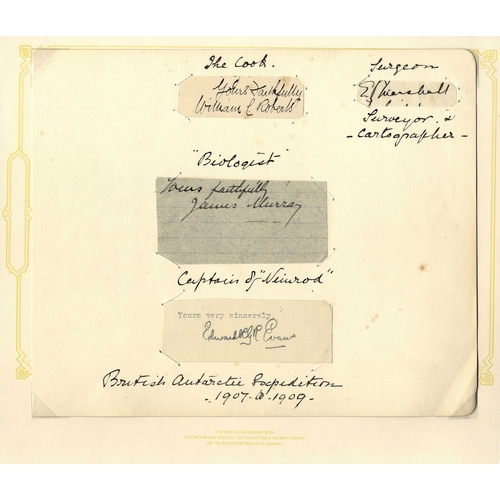 The Cook.
Yours faithfully
William C Roberts
Surgeon
E S Marshall
Surveyor &
- Cartographer -
"Biologist"
Yours faithfully
James Murray
Captain of "Nimrod"
Yours very sincerely
Edward R G R Evans
British Antarctic Expedition
- 1907 to 1909 -